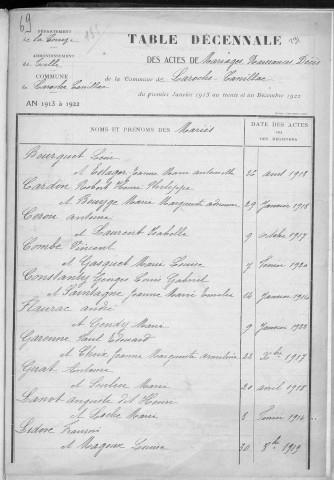 69
DÉPARTEMENT
de la Corrèze
TABLE DÉCENNALE
ARRONDISSEMENT
de Tulle
DES ACTES DE Mariages Naissances Décès
COMMUNE
de la Commune de Laroche-Canillac
de Laroche Canillac
du premier Janvier 1913 au trente et un Décembre 1922
AN 1913 à 1922
NOMS ET PRÉNOMS DES Mariés
DATE DES ACTES
OU
DES REGISTRES
Bourguet Léon
et Estager Jeanne Marie Antoinette 26 avril 1918
Cardon Norbert Henri Philippe
et Marie Marguerite 29 Janvier 1918
Ceron Antoine
et Laurent Isabelle 9 octobre 1917
Combe Vincent
et Gasquet Marie Louise 7 Février 1920
Constanty Georges Louis Gabriel
et Saintagne Jeanne Marie Janvier 1914
Fleurac André
et Gendy Marie 9 Janvier 1922
Garenne Paul Edouard
et Jeanne Marguerite 22 Xbre 1917
Girat Antoine
et Marie 20 avril 1918
Lanot Auguste dit Henri
et Marie 8 Février 1914
François
et Mageux Louise 30 8bre 1919